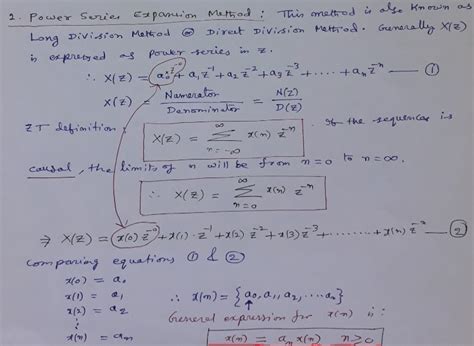 2. Power Series Expansion Method : This method is also known as
Long Division Method @ Direct Division Method. Generally X(z)
is expressed as power series in z.
∴ X(z) = a₀z⁻⁰ + a₁z⁻¹ + a₂z⁻² + a₃z⁻³ + ..... + aₙz⁻ⁿ — ①
X(z) = Numerator / Denominator = N(z) / D(z)
ZT definition : X(z) = Σ_{n=-∞}^{∞} x(n) z⁻ⁿ . If the sequences is
causal, the limits of n will be from n=0 to n=∞.
∴ X(z) = Σ_{n=0}^{∞} x(n) z⁻ⁿ
⇒ X(z) = x(0)z⁻⁰ + x(1)·z⁻¹ + x(2)z⁻² + x(3)z⁻³ + ........ + x(n)z⁻ⁿ — ②
comparing equations ① & ②
x(0) = a₀
x(1) = a₁
x(2) = a₂
x(n) = aₙ
∴ x(n) = {a₀, a₁, a₂, .... aₙ}
↑
General expression for x(n) is :
x(n) = aₙ x(n) n≥0